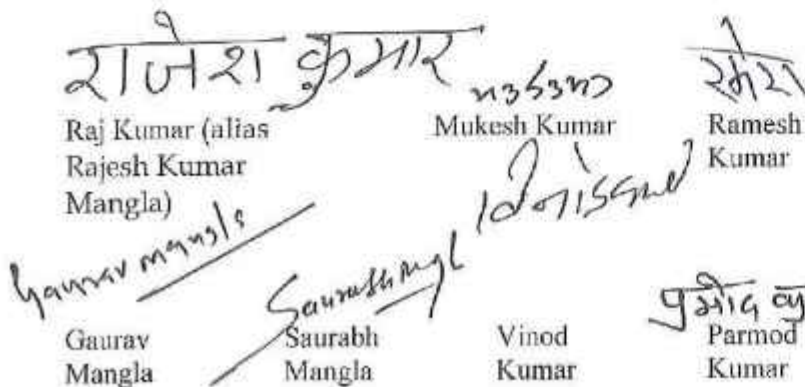 राजेश कुमार
Raj Kumar (alias
Rajesh Kumar
Mangla)
Mukesh Kumar
रमेश
Ramesh
Kumar
Gaurav Mangla
Gaurav
Mangla
Saurabh
Mangla
Vinod
Kumar
प्रमोद कु
Parmod
Kumar